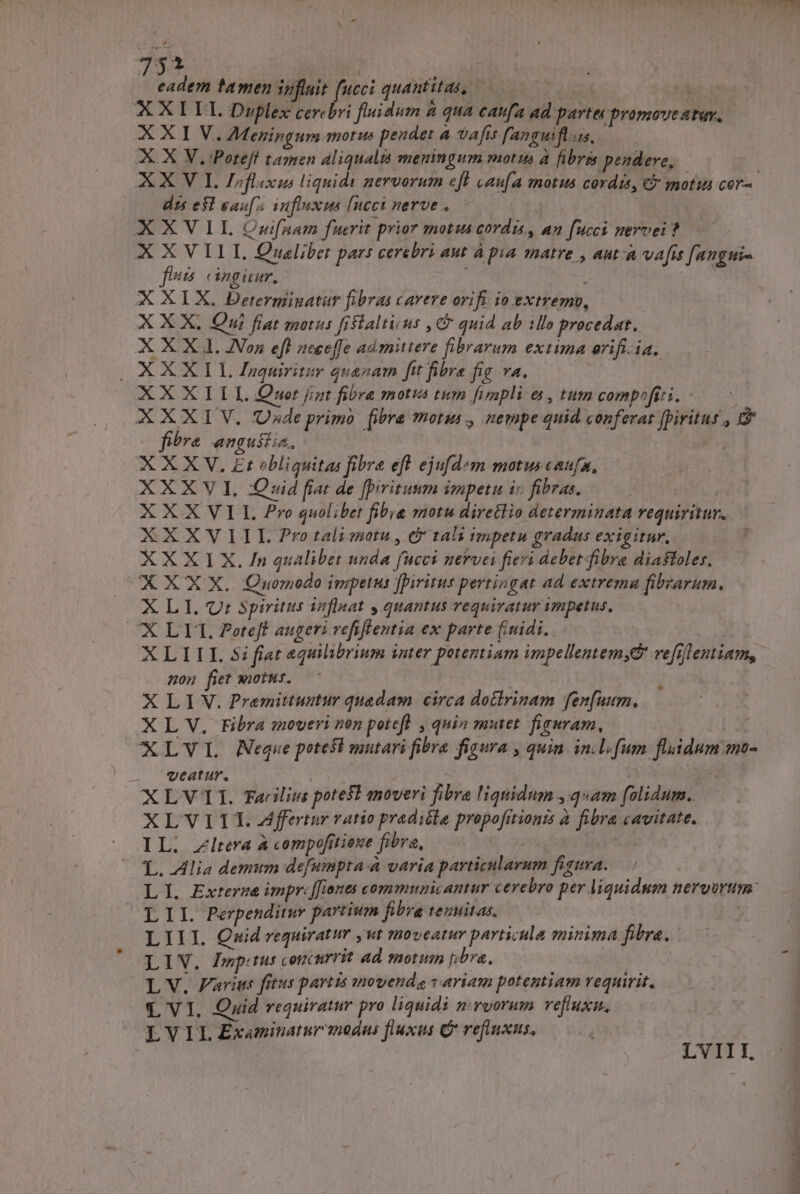 752
eadem tamen influit succi quantitas,
XXIII. Duplex cerebri fluidum à qua causa ad partes promoveatur.
XXIV. Meningum motus pendet à vasis sanguifluis.
XXV. Potest tamen aliqualis meningum motus à fibris pendere.
XXVI. Influxus liquidi nervorum est causa motus cordis, & motus cor-
dis est causa influxus succi nerve.
XXVII. Quisnam fuerit prior motus cordis, an succi nervei?
XXVIII. Quælibet pars cerebri aut à pia matre, aut à vasis sangui-
fluis cingitur.
XXIX. Determinatur fibras carere orifi io extremo,
XXX. Qui fiat motus fistalticus, & quid ab illo procedat.
XXXI. Non est necesse admittere fibrarum extima orificia.
XXXII. Inquiritur quænam sit fibræ fig ra.
XXXIII. Quot sint fibræ motus tum simpli es, tum compositi.
XXXIV. Unde primò fibræ motus, nempe quid conferat spiritus, &
fibræ angustia.
XXXV. Et obliquitas fibræ est ejusdem motus causa,
XXXVI. Quid fiat de spirituum impetu in fibras.
XXXVII. Pro quolibet fibræ motu directio determinata requiritur.
XXXVIII. Pro tali motu, & tali impetu gradus exigitur.
XXXIX. In qualibet unda succi nervei fieri debet fibræ diastoles.
XXXX. Quomodo impetus spiritus pertingat ad extrema fibrarum.
XLI. Ut Spiritus influat, quantus requiratur impetus.
XLII. Potest augeri resistentia ex parte fluidi.
XLIII. Si fiat æquilibrium inter potentiam impellentem, & resistentiam,
non fiet motus.
XLIV. Præmittuntur quædam circa doctrinam sensuum.
XLV. Fibra moveri non potest, quin mutet figuram,
XLVI. Neque potest mutari fibræ figura, quin inclusum fluidum mo-
veatur.
XLVII. Facilius potest moveri fibræ liquidum, quam solidum.
XLVIII. Affertur ratio prædictæ propositionis à fibræ cavitate.
IL. Altera à compositione fibræ,
L. Alia demum desumpta à varia particularum figura.
LI. Externæ impressiones communicantur cerebro per liquidum nervorum
LII. Perpenditur partium fibræ tenuitas.
LIII. Quid requiratur, ut moveatur particula minima fibræ.
LIV. Impetus concurrit ad motum fibræ.
LV. Varius situs partis movendæ variam potentiam requirit.
LVI. Quid requiratur pro liquidi nervorum refluxu.
LVII. Examinatur modus fluxus & refluxus.
LVIII.